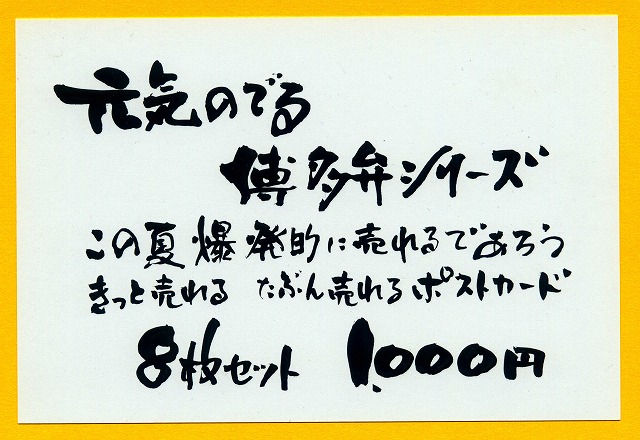 元気のでる
博多弁シリーズ
この夏爆発的に売れるであろう
きっと売れる たぶん売れるポストカード
8枚セット 1,000円